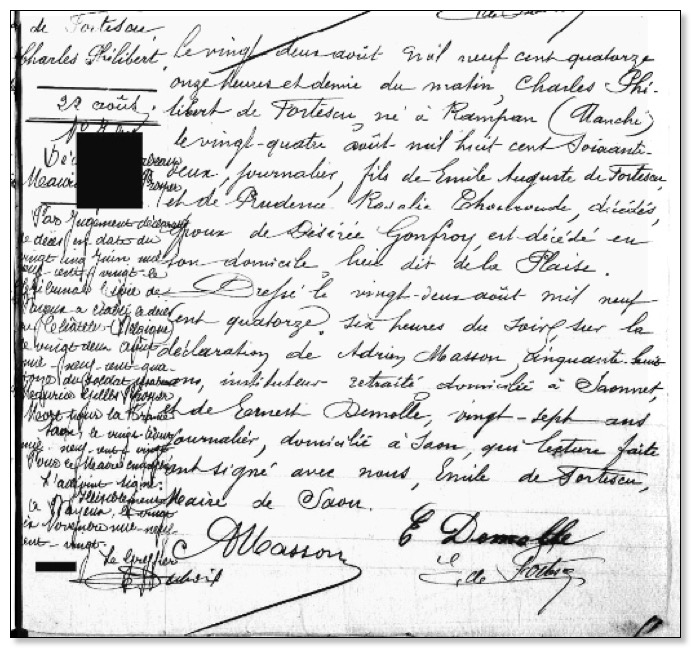 de Fortescu
Charles Philibert
22 août
Le vingt deux août mil neuf cent quatorze
onze heures et demie du matin, Charles Phi-
libert de Fortescu, né à Rampan (Manche)
le vingt-quatre août mil huit cent soixante-
deux, journalier, fils de Emile Auguste de Fortescu,
et de Prudence Rosalie, décédés,
époux de Désirée Gonfroy, est décédé en
son domicile, lieu dit de la Plaise.
Dressé le vingt-deux août mil neuf
cent quatorze, six heures du soir, sur la
déclaration de Adrien Masson, cinquante-huit
ans, instituteur retraité domicilié à Saonnet,
et de Ernest Demolle, vingt-sept ans
journalier, domicilié à Saon, qui lecture faite
ont signé avec nous, Emile de Fortescu,
Maire de Saon.
Par jugement déclaratif
de décès en date du
vingt cinq juin mil
neuf cent vingt le
Tribunal Civil de
Bayeux a établi le décès
le vingt deux août
mil neuf cent qua-
torze du soldat
Mort pour la France
Saon, le vingt
mil neuf cent vingt
L'adjoint signé:
Bayeux, le vingt
Novembre mil neuf
cent-vingt.
Le Greffier
A Masson
E Demolle
E. de Fortescu